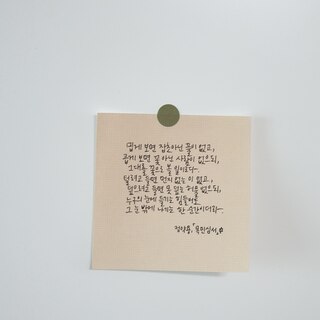 밉게 보면 잡초 아닌 풀이 없고,
곱게 보면 꽃 아닌 사람이 없으되,
그대를 꽃으로 볼 일이로다.
털려고 들면 먼지 없는 이 없고,
덮으려고 들면 못 덮을 허물 없으되,
누구의 눈에 들기는 힘들어도
그 눈 밖에 나기는 한 순간이더라.
정약용, 「목민심서」